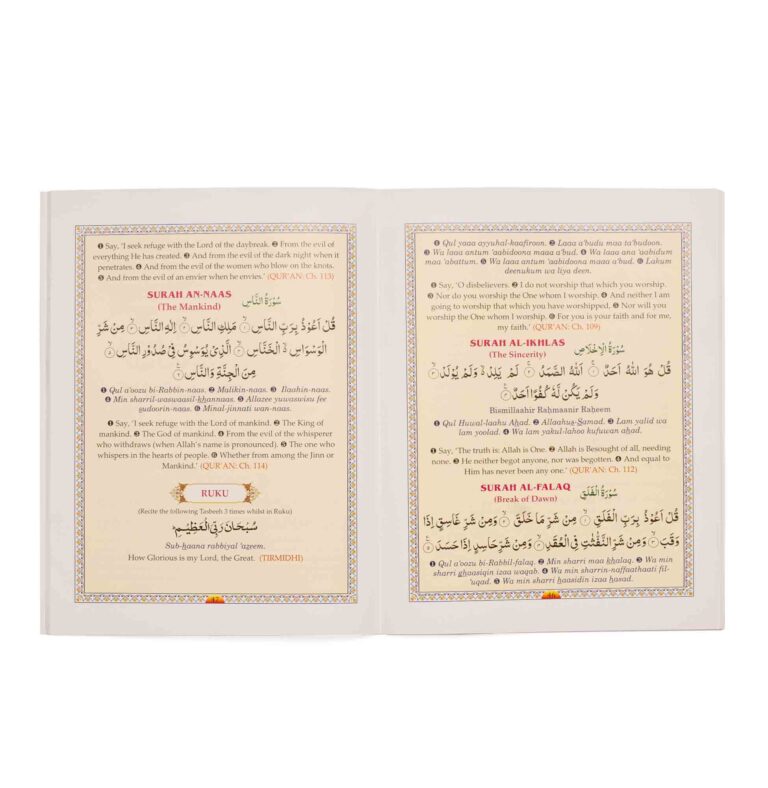 ❶ Qul yaaa ayyuhal-kaafiroon. ❷ Laaa a'budu maa ta'budoon.
❸ Wa laaa antum 'aabidoona maaa a'bud. ❹ Wa laaa ana 'aabidum
maa 'abattum. ❺ Wa laaa antum 'aabidoona maaa a'bud. ❻ Lakum
deenukum wa liya deen.
❶ Say, 'O disbelievers. ❷ I do not worship that which you worship.
❸ Nor do you worship the One whom I worship. ❹ And neither I am
going to worship that which you have worshipped. ❺ Nor will you
worship the One whom I worship. ❻ For you is your faith and for me,
my faith.' (QUR'AN: Ch. 109)
SURAH AL-IKHLAS سُوْرَةُ الْاِخْلَاصِ
(The Sincerity)
قُلْ هُوَ اللّٰهُ اَحَدٌ ۝١ اَللّٰهُ الصَّمَدُ ۝٢ لَمْ يَلِدْ ۙ وَلَمْ يُوْلَدْ ۝٣
وَلَمْ يَكُنْ لَّهٗ كُفُوًا اَحَدٌ ۝٤
Bismillaahir Rahmaanir Raheem
❶ Qul Huwal-laahu Ahad. ❷ Allaahus-Samad. ❸ Lam yalid wa
lam yoolad. ❹ Wa lam yakul-lahoo kufuwan ahad.
❶ Say, 'The truth is: Allah is One. ❷ Allah is Besought of all, needing
none. ❸ He neither begot anyone, nor was begotten. ❹ And equal to
Him has never been any one.' (QUR'AN: Ch. 112)
SURAH AL-FALAQ سُوْرَةُ الْفَلَقِ
(Break of Dawn)
قُلْ اَعُوْذُ بِرَبِّ الْفَلَقِ ۝١ مِنْ شَرِّ مَا خَلَقَ ۝٢ وَمِنْ شَرِّ غَاسِقٍ اِذَا
وَقَبَ ۝٣ وَمِنْ شَرِّ النَّفّٰثٰتِ فِى الْعُقَدِ ۝٤ وَمِنْ شَرِّ حَاسِدٍ اِذَا حَسَدَ ۝٥
❶ Qul a'oozu bi-Rabbil-falaq. ❷ Min sharri maa khalaq. ❸ Wa min
sharri ghaasiqin izaa waqab. ❹ Wa min sharrin-naffaathaati fil-
'uqad. ❺ Wa min sharri haasidin izaa hasad.
❶ Say, 'I seek refuge with the Lord of the daybreak. ❷ From the evil of
everything He has created. ❸ And from the evil of the dark night when it
penetrates. ❹ And from the evil of the women who blow on the knots.
❺ And from the evil of an envier when he envies.' (QUR'AN: Ch. 113)
SURAH AN-NAAS سُوْرَةُ النَّاسِ
(The Mankind)
قُلْ اَعُوْذُ بِرَبِّ النَّاسِ ۝١ مَلِكِ النَّاسِ ۝٢ اِلٰهِ النَّاسِ ۝٣ مِنْ شَرِّ
الْوَسْوَاسِ ۙ الْخَنَّاسِ ۝٤ الَّذِىْ يُوَسْوِسُ فِىْ صُدُوْرِ النَّاسِ ۝٥
مِنَ الْجِنَّةِ وَالنَّاسِ ۝٦
❶ Qul a'oozu bi-Rabbin-naas. ❷ Malikin-naas. ❸ Ilaahin-naas.
❹ Min sharril-waswaasil-khannaas. ❺ Allazee yuwaswisu fee
sudoorin-naas. ❻ Minal-jinnati wan-naas.
❶ Say, 'I seek refuge with the Lord of mankind. ❷ The King of
mankind. ❸ The God of mankind. ❹ From the evil of the whisperer
who withdraws (when Allah's name is pronounced). ❺ The one who
whispers in the hearts of people. ❻ Whether from among the Jinn or
Mankind.' (QUR'AN: Ch. 114)
RUKU
(Recite the following Tasbeeh 3 times whilst in Ruku)
سُبْحَانَ رَبِّيَ الْعَظِيْمِ
Sub-haana rabbiyal 'azeem.
How Glorious is my Lord, the Great. (TIRMIDHI)